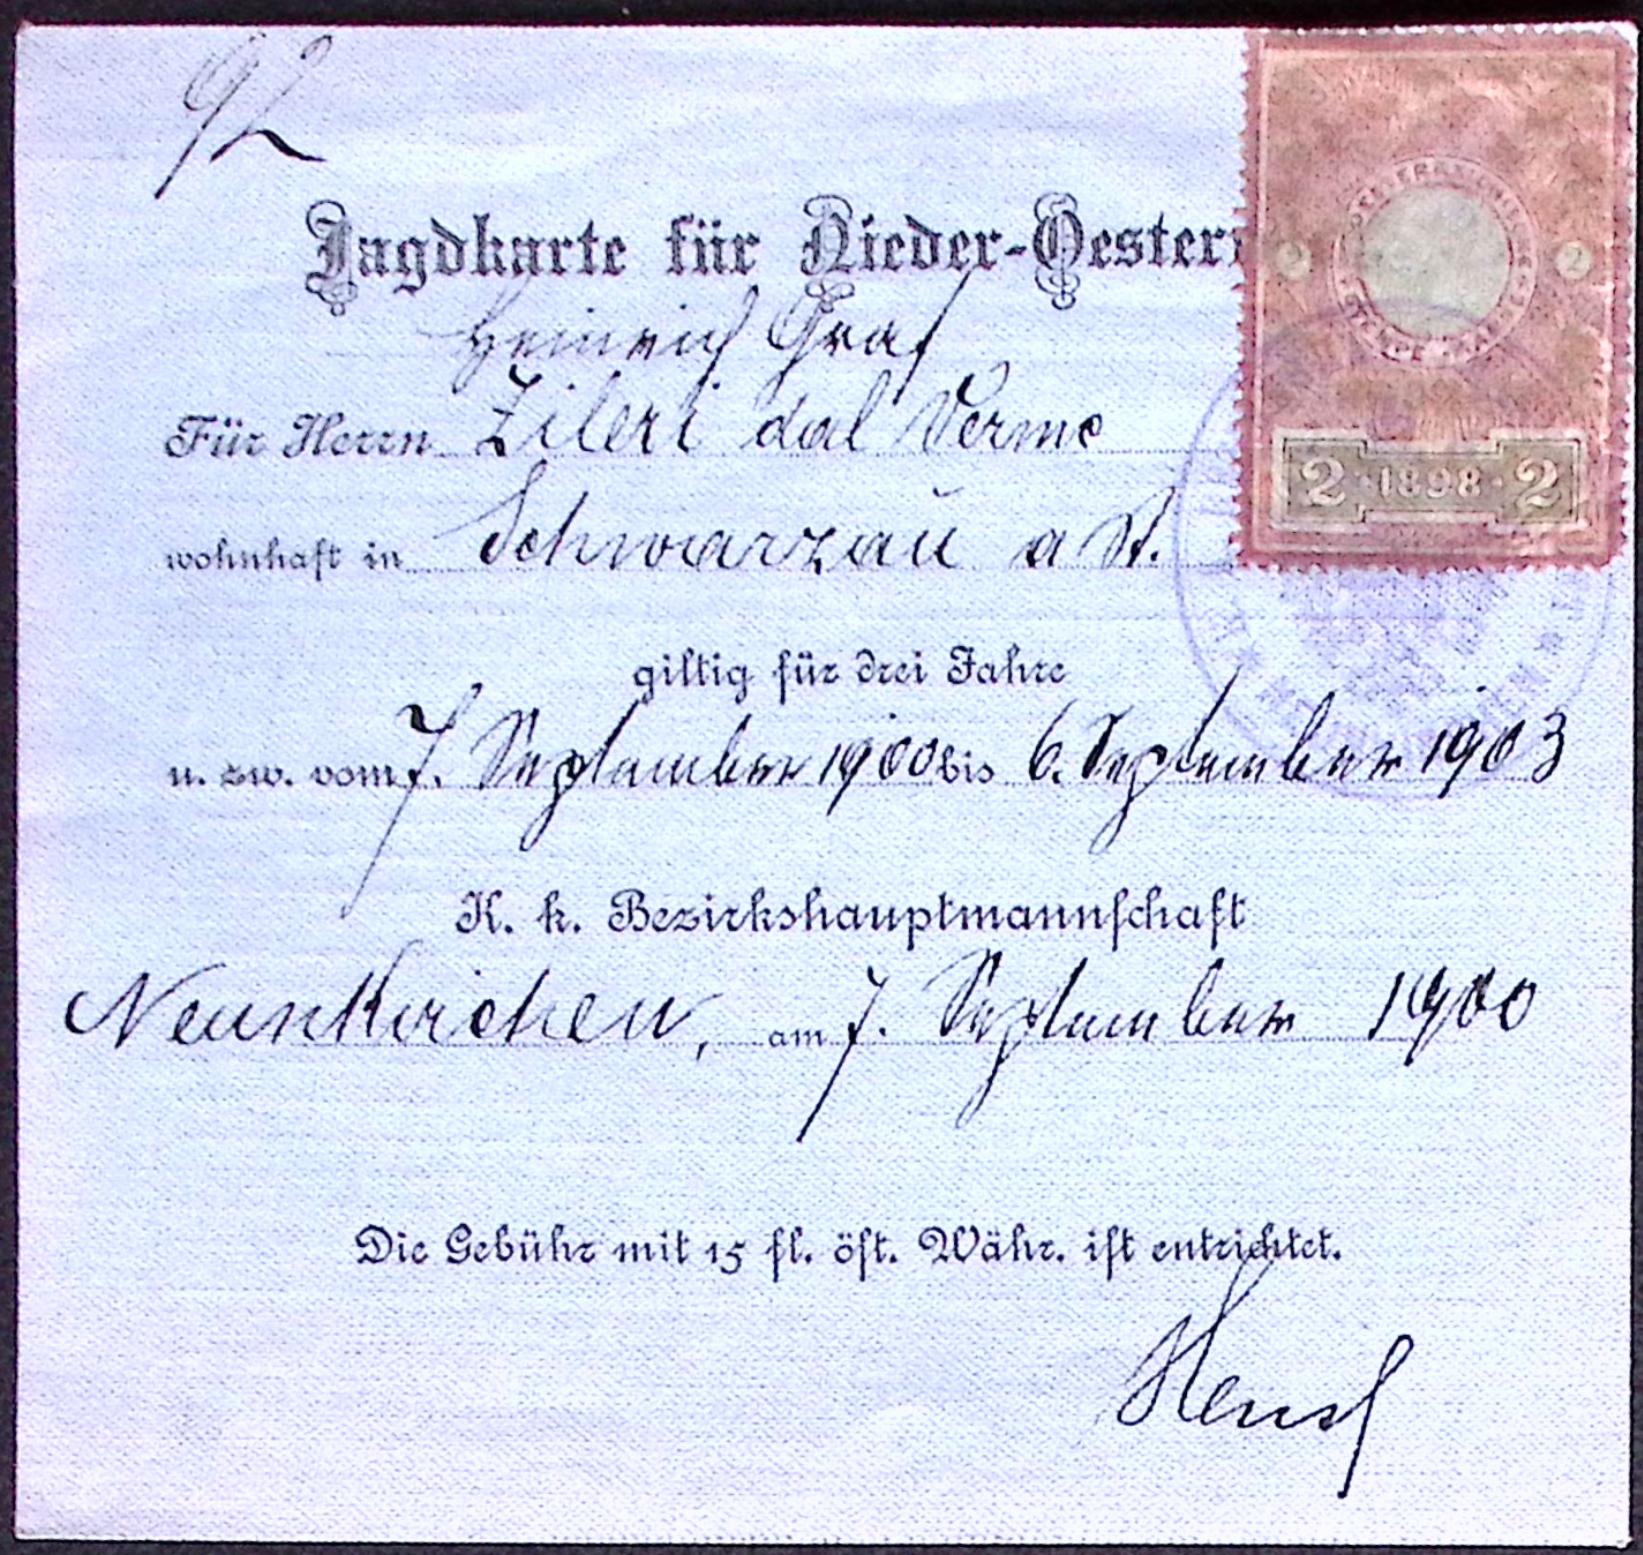 92
Jagdkarte für Nieder-Oesterr
Heinrich Graf
Für Herrn Zileri dal Verme
wohnhaft in Schwarzau a St.
giltig für drei Jahre
u. zw. vom 7. September 1900 bis 6. September 1903
K. k. Bezirkshauptmannschaft
Neunkirchen, am 7. September 1900
Die Gebühr mit 15 fl. öst. Währ. ist entrichtet.
2 2
2 · 1898 · 2